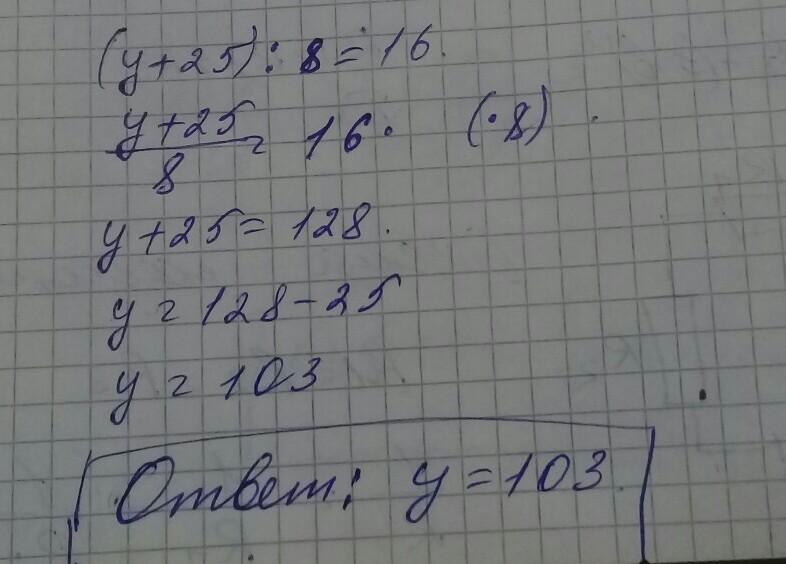 (y+25): 8=16.
y+25/8 = 16. (·8)
y+25= 128.
y = 128-25
y = 103
Ответ: y=103